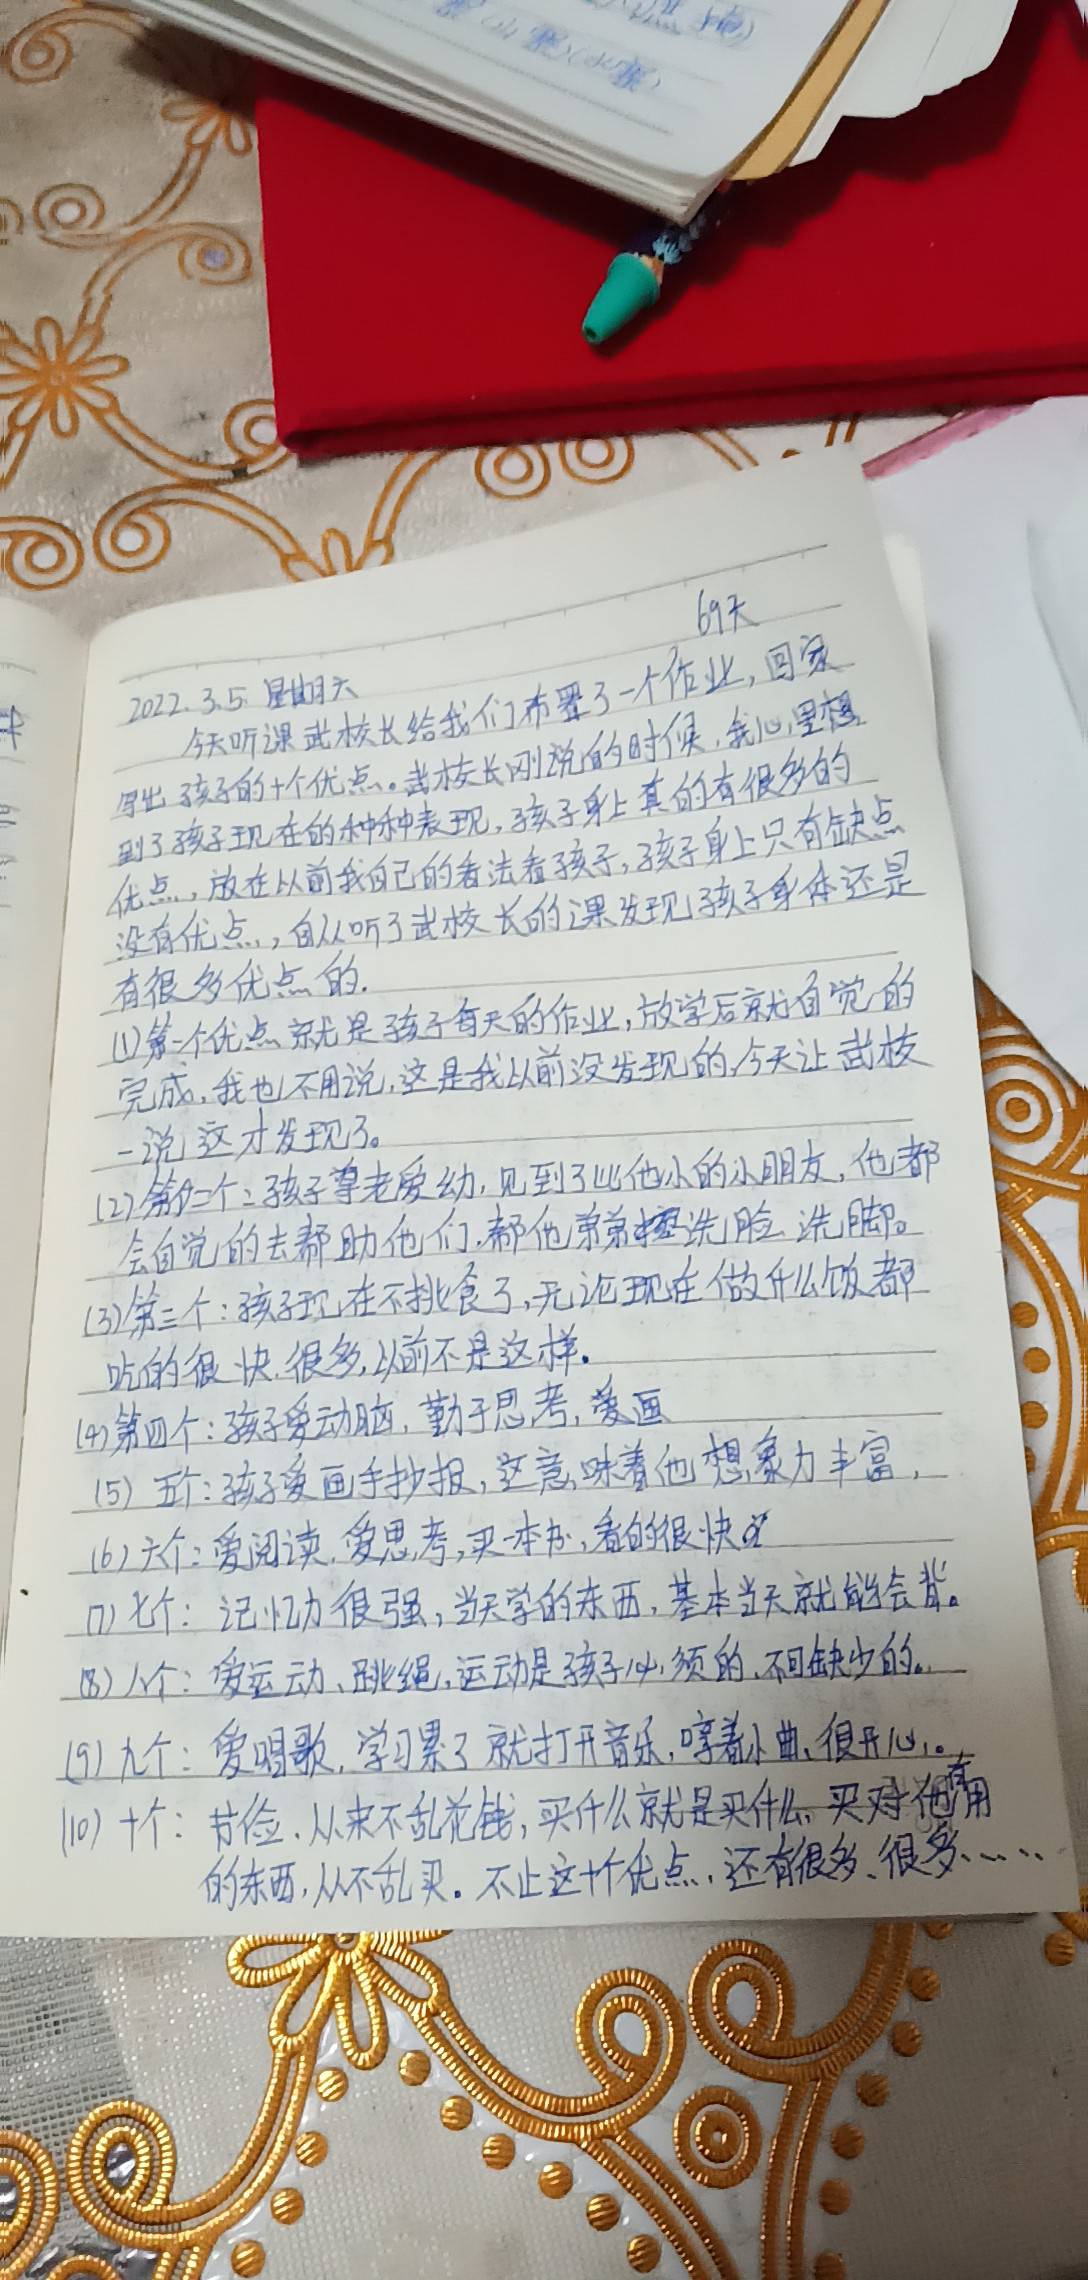 69天
2022.3.5 星期六
今天听课武校长给我们布置了一个作业,回家
写出孩子的十个优点。武校长刚说的时候,我心里想
到了孩子现在的种种表现,孩子身上真的有很多的
优点,放在以前我自己的看法看孩子,孩子身上只有缺点
没有优点,自从听了武校长的课发现孩子身体还是
有很多优点的.
(1)第一个优点就是孩子每天的作业,放学后就自觉的
完成,我也不用说,这是我以前没发现的,今天让武校
一说这才发现了。
(2)第二个:孩子尊老爱幼,见到了比他小的小朋友,他都
会自觉的去帮助他们,帮他弟弟洗脸、洗脚。
(3)第三个:孩子现在不挑食了,无论现在做什么饭都
吃的很快、很多,以前不是这样.
(4)第四个:孩子爱动脑,勤于思考,爱画
(5) 五个:孩子爱画手抄报,这意味着他想象力丰富,
(6)六个:爱阅读,爱思考,买一本书,看的很快
(7)七个:记忆力很强,当天学的东西,基本当天就能会背。
(8)八个:爱运动、跳绳,运动是孩子必须的,不可缺少的。
(9)九个:爱唱歌,学习累了就打开音乐,哼着小曲、很开心。
(10)十个:节俭、从来不乱花钱,买什么就是买什么,买对他有用
的东西,从不乱买。不止这十个优点,还有很多、很多……